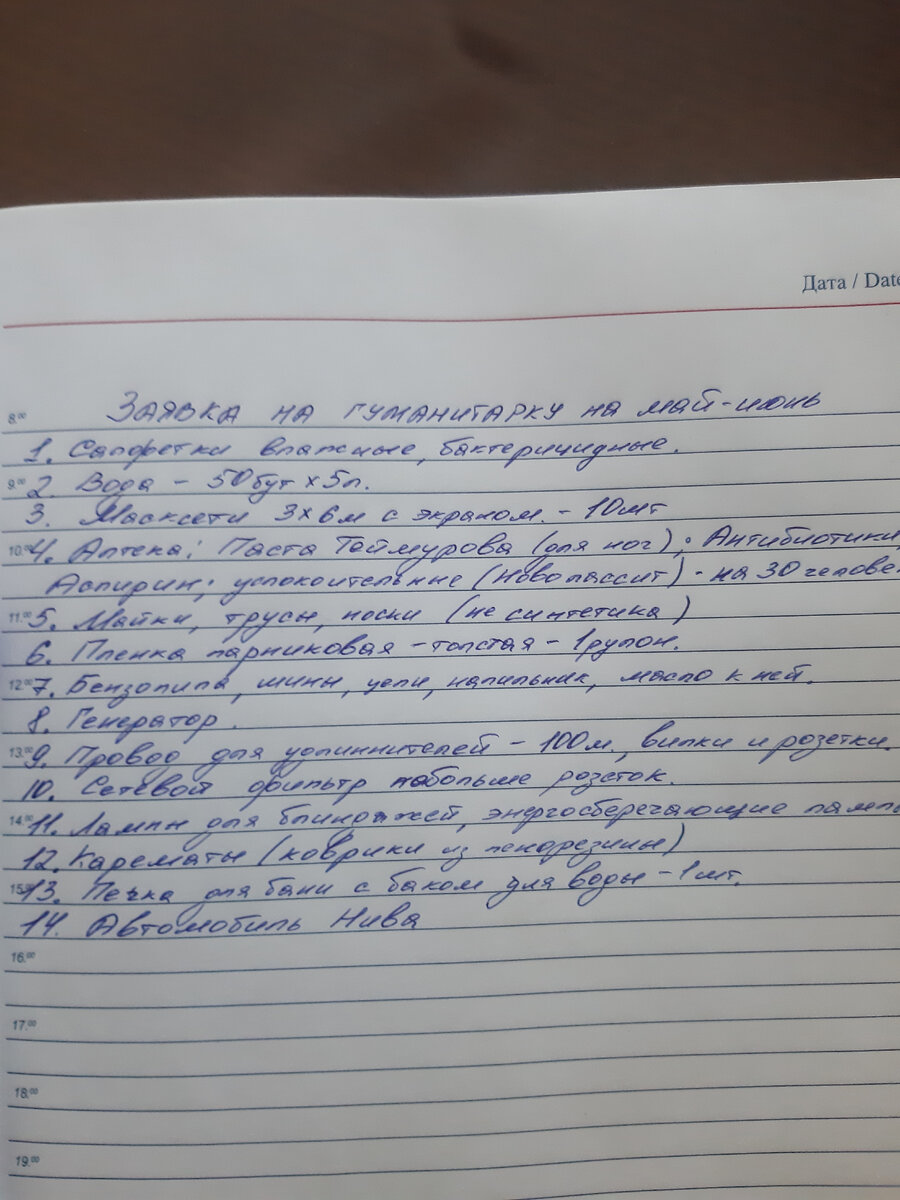 Дата / Date
8.00 Заявка на гуманитарку на май-июнь
1. Салфетки влажные, бактерицидные.
9.00 2. Вода - 50бут х 5л.
3. Масксети 3х6м с экраном. - 10шт
10.00 4. Аптека: Паста Теймурова (для ног); Антибиотики,
Аспирин; успокоительные (Новопассит) - на 30 челове
11.00 5. Майки, трусы, носки (не синтетика)
6. Пленка парниковая - толстая - 1рулон.
12.00 7. Бензопила, шины, цепи, напильник, масло к ней.
8. Генератор.
13.00 9. Провод для удлиннителей - 100м, вилки и розетки.
10. Сетевой фильтр побольше розеток.
14.00 11. Лампы для блиндажей, энергосберегающие лампы
12. Карематы (коврики из пенорезины)
15.00 13. Печка для бани с баком для воды - 1шт.
14. Автомобиль Нива
16.00
17.00
18.00
19.00